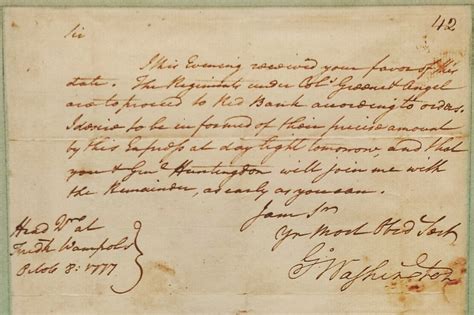 42
Sir
I this Evening received your favor of this
date. The Regiments under Cols. Greene & Angel
are to proceed to Red Bank according to orders.
I desire to be informed of their precise amount
by this Express at day light tomorrow, and that
you & Genl. Huntingdon will join me with
the Remainder, as early as you can.
I am Sir
Yr Most Obed Servt
Go Washington
Head Qrs at
Fredk Wampole's
Octob 8: 1777.